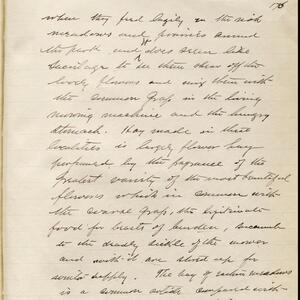 176
when they feed lazily in the rich
meadows and prairies around
the park and it does seem like
sacrilage to see them shear off the
lovely flowers and mix them with
the common grass in the living
mowing machine and the hungry
stomach. Hay made in these
localities is largely flower hay
perfumed by the fragrance of the
greatest variety of the most beautiful
flowers which in common with
the cereal grass, the legitimate
food for beasts of burden, succumb
to the deadly sickle of the mower
and with it are stored up for
winter supply. The hay of eastern meadows
is a common article compared with